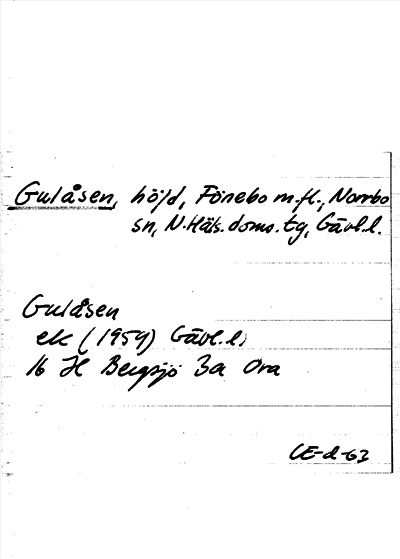 Gulåsen, höjd, Fönebo m.fl., Norrbo
sn, N.Häls.doms.tg, Gävl.l.
Gulåsen
ek (1954) Gävl.l.
16 H Bergsjö 3a Ora
CE-d-63